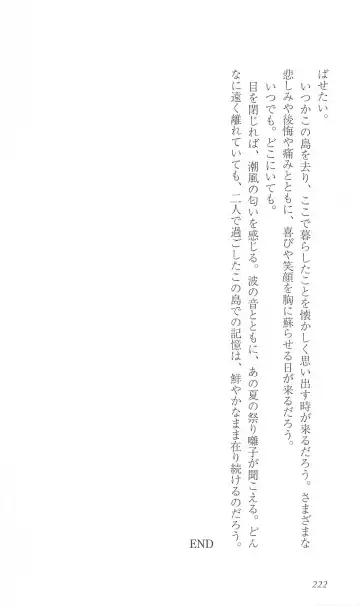 ばせたい。
いつかこの島を去り、ここで暮らしたことを懐かしく思い出す時が来るだろう。さまざまな
悲しみや後悔や痛みとともに、喜びや笑顔を胸に蘇らせる日が来るだろう。
いつでも。どこにいても。
目を閉じれば、潮風の匂いを感じる。波の音とともに、あの夏の祭り囃子が聞こえる。どん
なに遠く離れていても、二人で過ごしたこの島での記憶は、鮮やかなまま在り続けるのだろう。
END
222